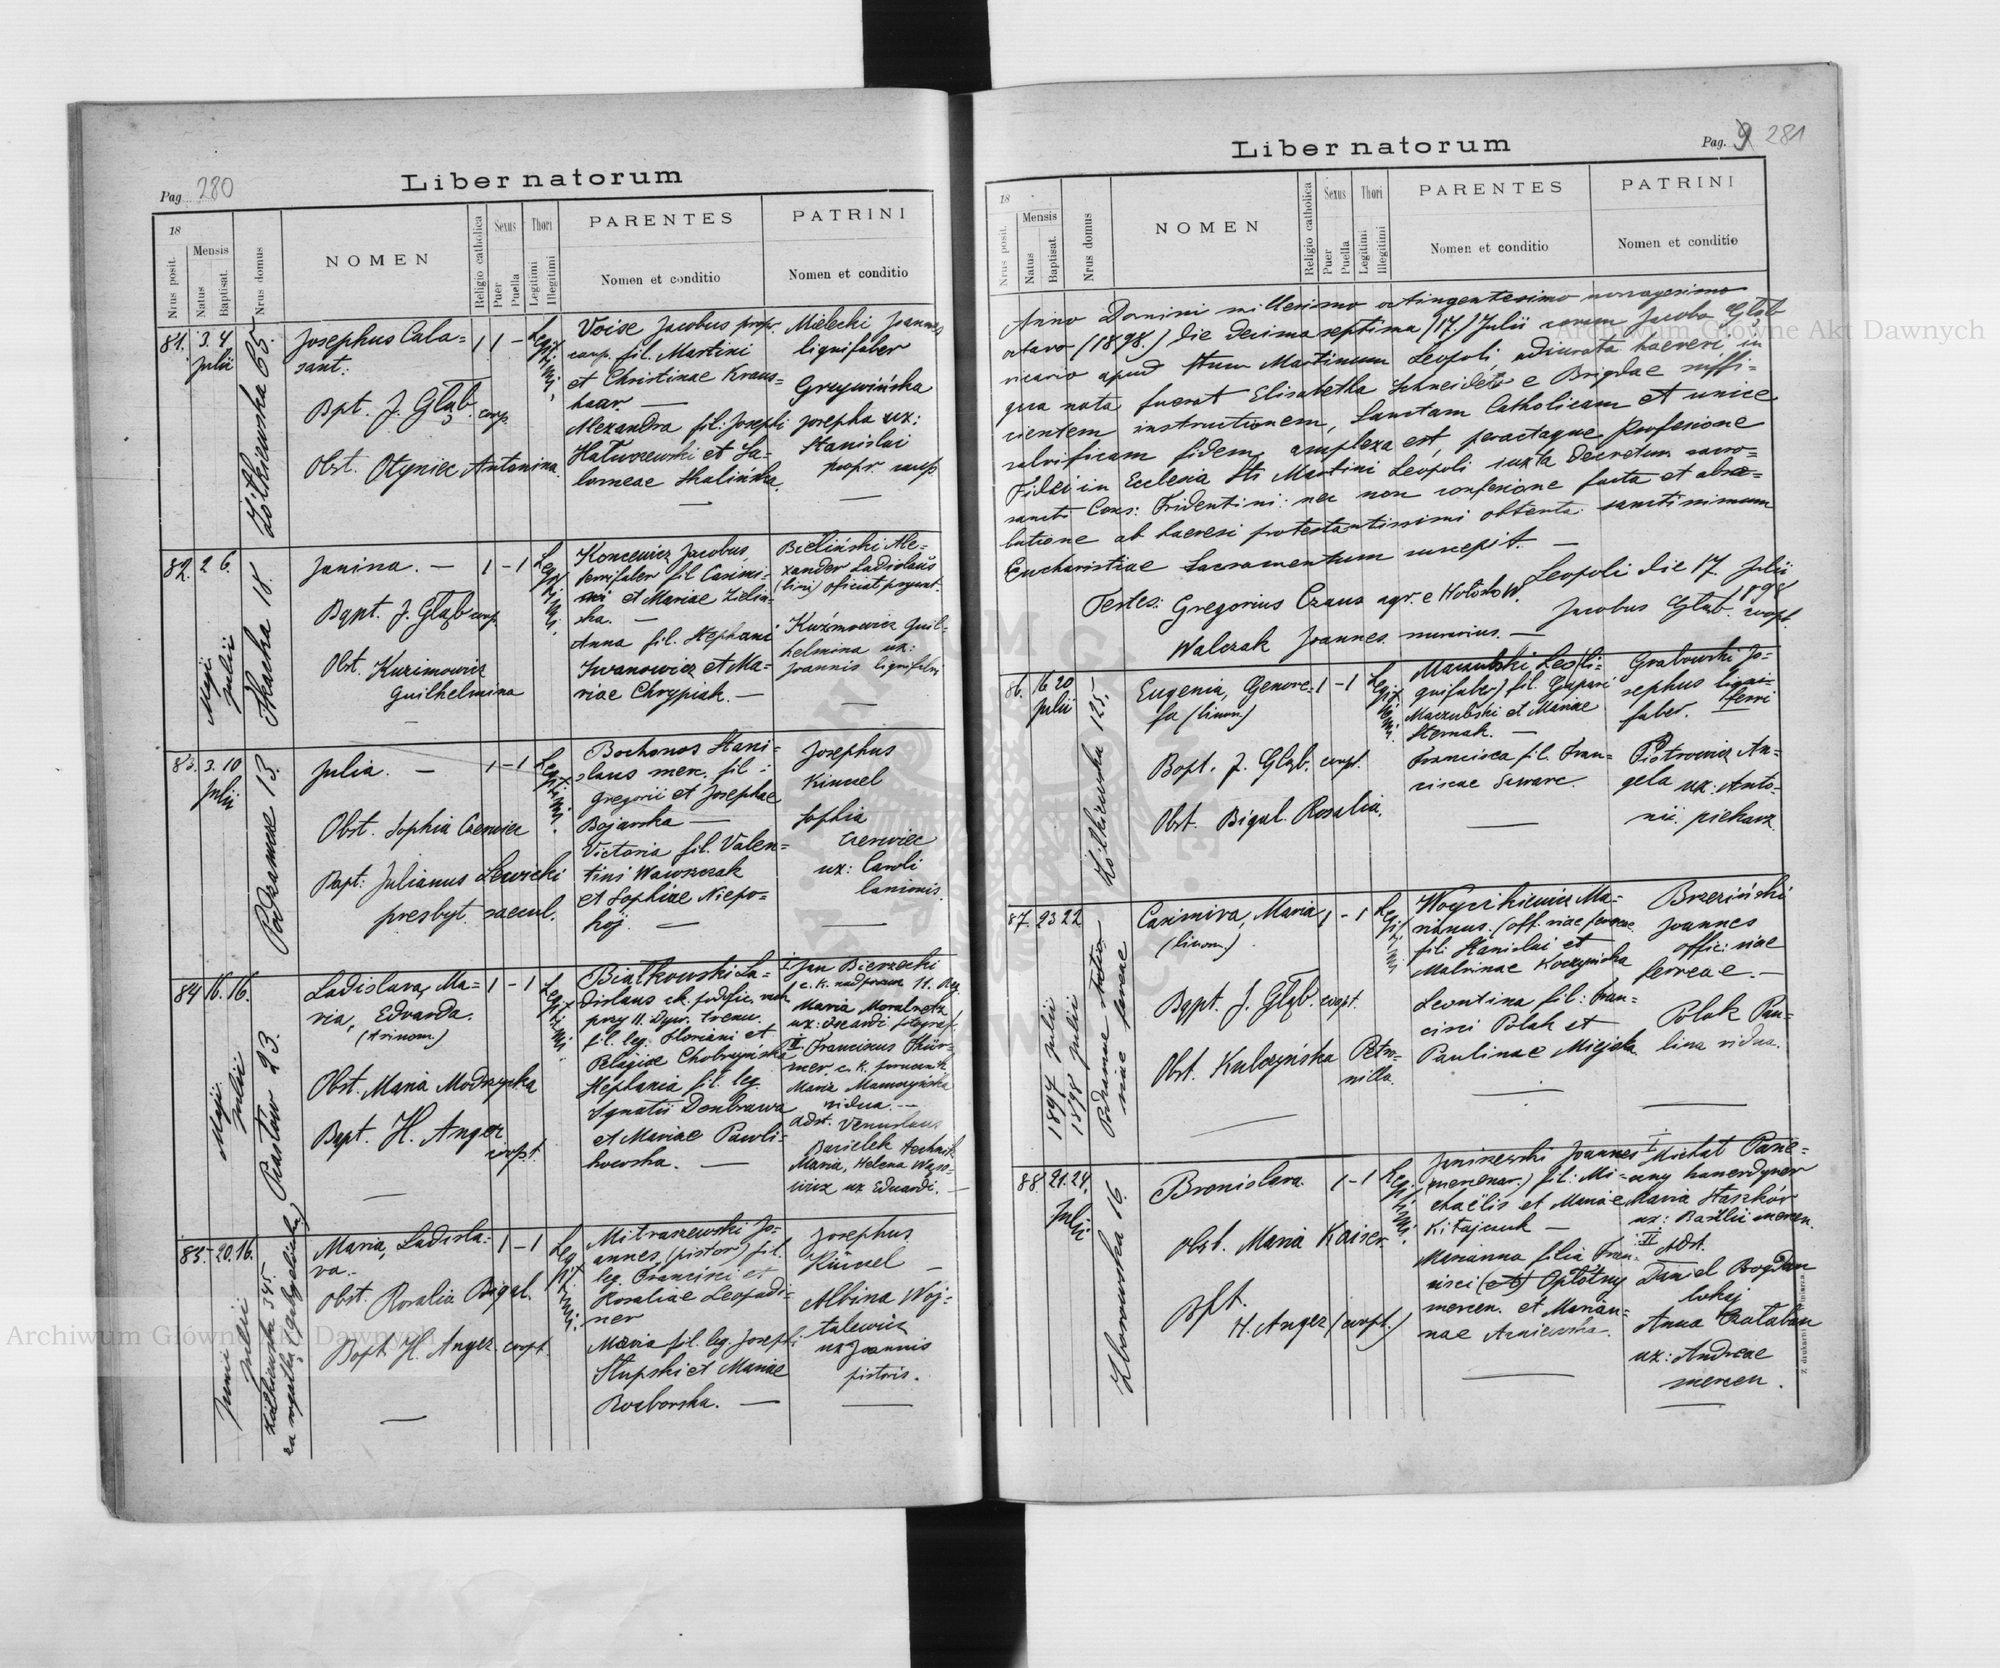 Pag. 280
Liber natorum
18
Nrus posit.
Mensis
Natus
Baptisat.
Nrus domus
NOMEN
Religio catholica
Sexus
Puer
Puella
Thori
Legitimi
Illegitimi
PARENTES
Nomen et conditio
PATRINI
Nomen et conditio
81. 3. 4.
Julii
Żółkiewska 65.
Josephus Cala=
sant:
Bpt. J. Głąb. coop.
Obst. Otyniec Antonina
1 1 -
Legitimi.
Voise Jacobus propr.
coop. fil. Martini
et Christinae Kraus=
haar. —
Alexandra fil: Josephi
et Sa=
lomeae Skalińska.
Mielecki Joannes
lignifaber
Grzywińska
Josepha ux:
Stanislai
propr.
82. 2 6.
Maji
Julii
Tkacka 18.
Janina. —
Bapt. J. Głąb coop.
Obst. Kuzimowicz
Guilhelmina
1 - 1
Legitimi.
Koncewicz Jacobus,
ferrifaber fil Casimi=
et Mariae Zielin=
ska. —
Anna fil. Stephani
Iwanowicz et Ma=
riae Chrypiak. —
Bieliński Ale=
xander Ladislaus
(bini) officiat:
Kuźmowicz Guil=
helmina ux:
Joannis lignifabri
83. 3. 10
Julii
Podzamcze 13.
Julia. —
Obst. Sophia Czerwiec
Bapt: Julianus Lewicki
presbyt. saecul.
1 - 1
Legitimi.
Bochonos Stani=
slaus merc. fil:
Gregorii et Josephae
Bojarska —
Victoria fil. Valen=
tini Wawrzczak
et Sophiae Niepo=
kój. —
Josephus
Kimmel
Sophia
Czerwiec
ux: Caroli
lanionis.
84 16. 16.
Maji
Julii
Piastów 23.
Ladislava, Ma=
ria, Edvarda.
(trinom.)
Obst. Maria Modrzycka
Bapt. H. Anger
coopt.
1 - 1
Legitimi.
Białkowski La=
dislaus ck.
przy 11. Dyw. trenu.
fil. leg. Floriani et
Pelagiae Chobrzyńska
Stephania fil. leg.
Ignatii Dombrawa
et Mariae Pawli=
kowska. —
I. Jan Bierzecki
c. k. 11. Reg.
Maria Moralretz
ux: Ricardi fotograf.
II. Franciscus Thür=
mer. c. k. porucznik
Maria
vidua. —
Adst. Venceslaus
Maria, Helena
ux Eduardi. —
85. 20. 16.
Junii
Julii
Żółkiewska 345.
za rogatką
Maria, Ladisla=
va. —
Obst. Rosalia Bigal.
Bapt. H. Anger. coopt.
1 - 1
Legitimi.
Mitraszewski Jo=
annes (pistor) fil.
leg. Francisci et
Rosaliae Leopadi=
ner
Maria fil. leg. Josephi
Słupski et Mariae
Rozborska. —
Josephus
Kimmel —
Albina Woj=
talewicz
ux Joannis
pistoris.
Pag. 9 281
Liber natorum
18
Nrus posit.
Mensis
Natus
Baptisat.
Nrus domus
NOMEN
Religio catholica
Sexus
Puer
Puella
Thori
Legitimi
Illegitimi
PARENTES
Nomen et conditio
PATRINI
Nomen et conditio
Anno Domini millesimo octingentesimo nonagesimo
octavo (1898.) die decima septima (17.) Julii coram Jacobo Głąb
vicario apud Stum Martinum Leopoli, adiurata haeresi, in
qua nata fuerat Elisabetha Schneider e Brigdae suffi=
cientem instructionem, Sanctam Catholicam et unice
salvificam fidem amplexa est, peractaque Profesione
Fidei in Ecclesia Sti Martini Leopoli juxta decretum sacro=
sancti Conc: Tridentini: nec non confesione facta et abso=
lutione ab haeresi protestantissimi obtenta sanctissimum
Eucharistiae Sacramentum suscepit. —
Leopoli die 17. Julii
1898
Testes: Gregorius Czaus agr. e Hołosków.
Jacobus Głąb. coopt.
Walczak Joannes murarius. —
86. 16 20
Julii
Żółkiewska 125.
Eugenia, Genove=
fa (binom.)
Bapt. J. Głąb. coopt.
Obst. Bigal. Rosalia.
1 - 1
Legitimi.
Maczubski Leo (li=
gnifaber) fil. Gaspari
Maczubski et Mariae
Sternak. —
Francisca fil. Fran=
ciscae Sawarc.
Grabowski Jo=
sephus ligni=
ferri
faber.
Piotrowicz An=
gela ux: Anto=
nii. piekarz
87. 23 22
1897 Julii
1898 Julii
Podzamcze Statio
viae ferreae
Casimira, Maria
(binom.)
Bapt. J. Głąb. coopt.
Obst. Kulczyńska Petro=
nilla.
1 - 1
Legitimi
Woycikiewicz Ma=
rianus. (off. viae ferreae
fil: Stanislai et
Malvinae Koczyńska
Leontina fil: Fran=
cisci Polak et
Paulinae Miejska
Brzeziński
Joannes
offic: viae
ferreae. —
Polak Pau=
lina vidua.
88. 21. 24.
Julii
Zborowska 16.
Bronislava.
Obst. Maria Kaiser.
Bpt.
H. Anger (coopt.)
1 - 1
Legitimi.
Janiszewski Joannes
(mercenar.) fil: Mi=
chaëlis et Mariae
Kitajczuk —
Marianna filia Fran=
cisci (et) Opłotny
mercen. et Marian=
nae Arniewska.
I. Michał Panie=
Maria Staszków
ux: Basilii mercen.
II Adst.
Daniel Bogdan
lokaj
Anna Czataban
ux: Andreae
mercen.
Archiwum Główne Akt Dawnych
Archiwum Główne Akt Dawnych